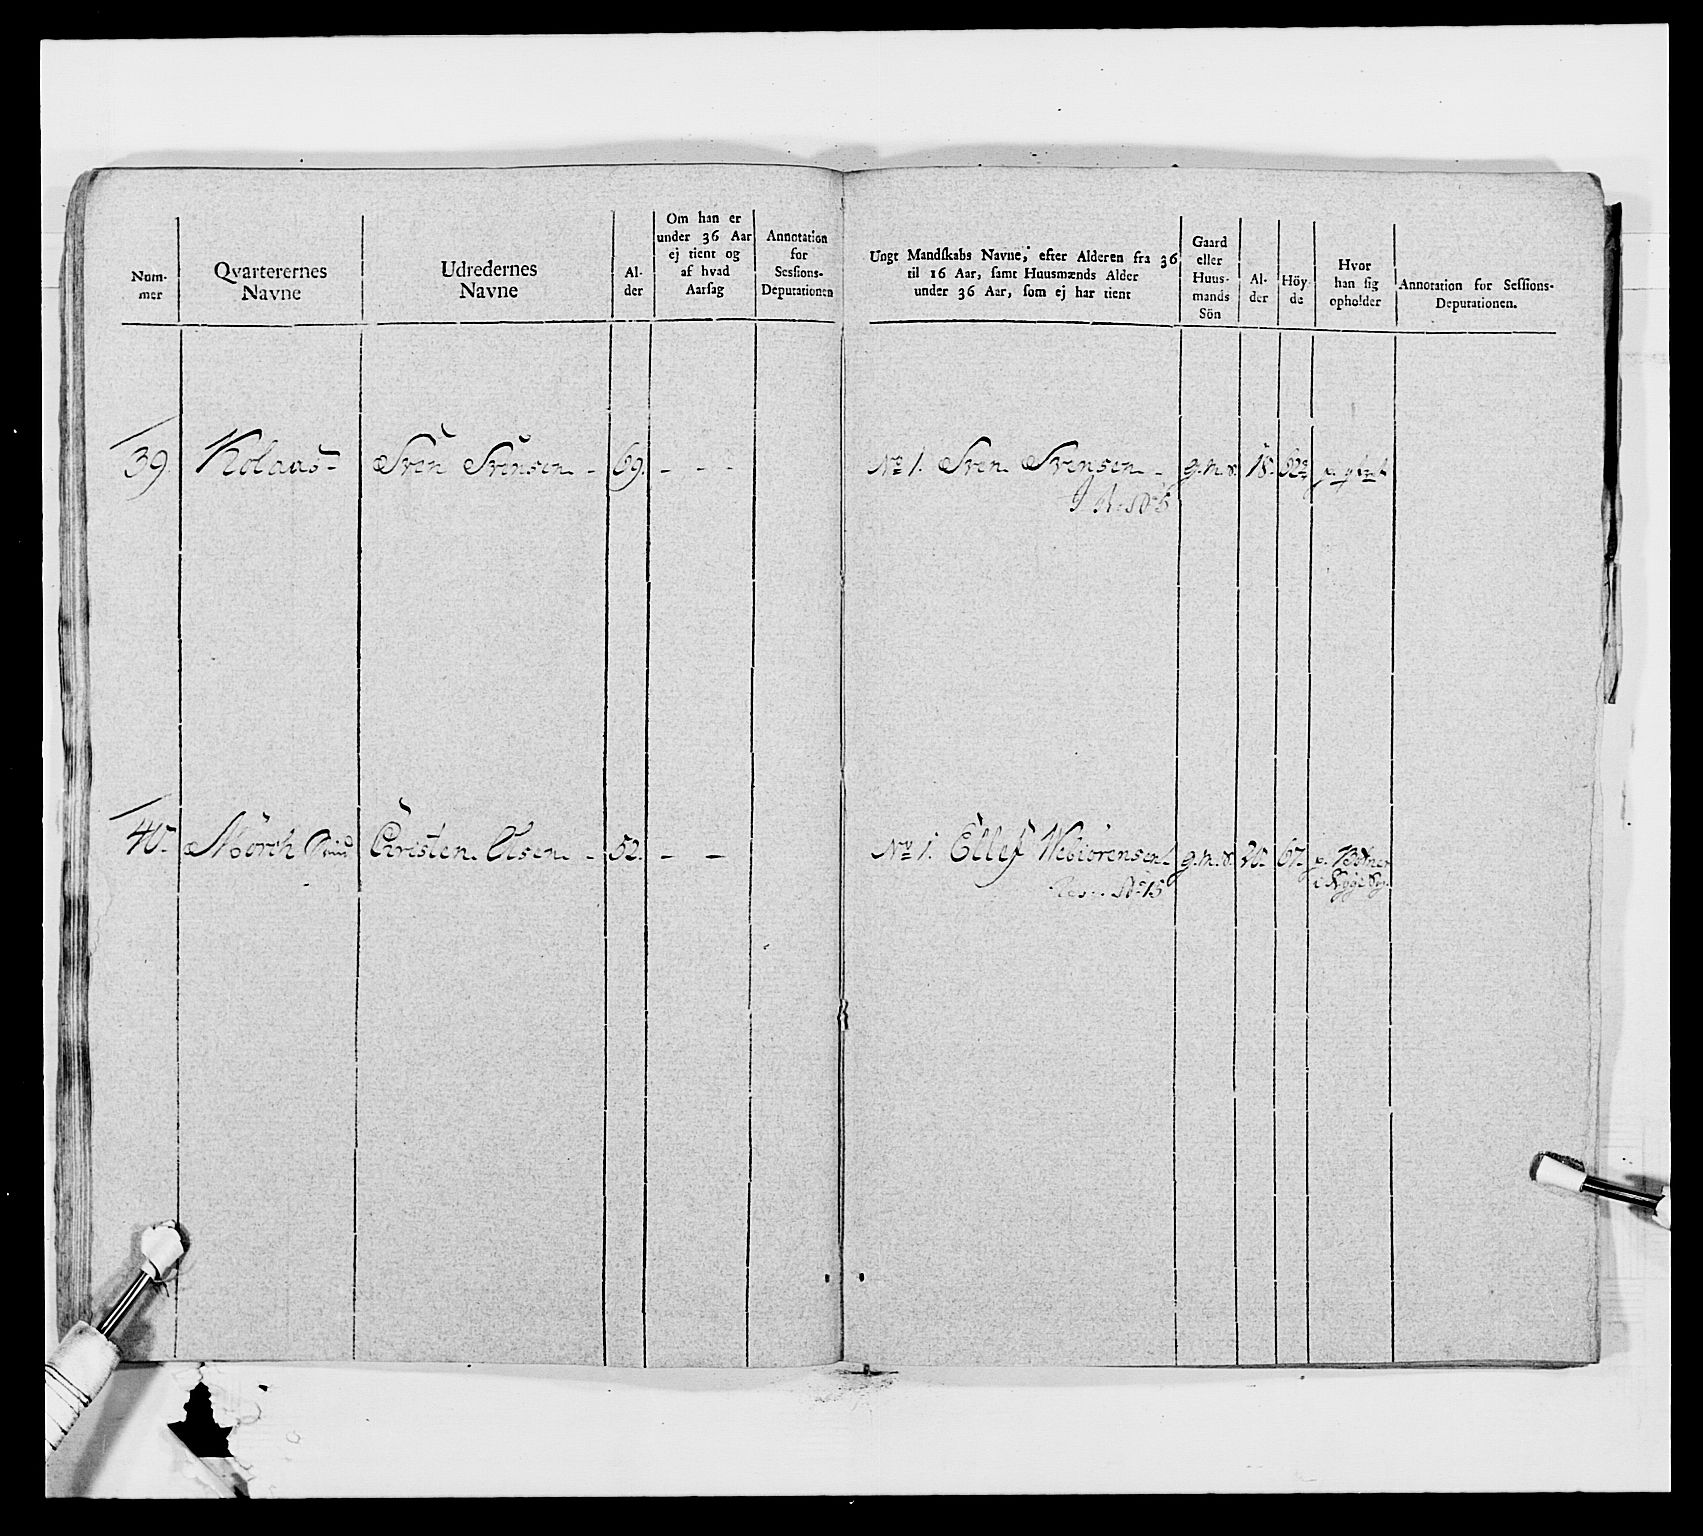 Num-
mer
Qvarterernes
Navne
Udredernes
Navne
Al-
der
Om han er
under 36 Aar
ej tient og
af hvad
Aarsag
Annotation
for
Sessions-
Deputationen
Ungt Mandskabs Navne, efter Alderen fra 36
til 16 Aar, samt Huusmænds Alder
under 36 Aar, som ej har tient
Gaard
eller
Huus-
mands
Sön
Al-
der
Höy-
de
Hvor
han sig
opholder
Annotation for Sessions-
Deputationen.
39. Kolaas- Sven Svensen - 69. - - - No 1. Sven Svensen - g.m.s. 18.
40. Mörch Christen Olsen - 52. - - No 1. Ellef Webiörensen g.m.s. 20. 67.